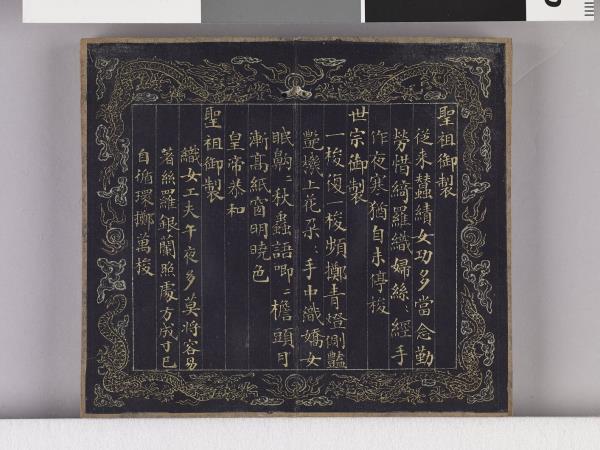 聖祖御製
從来蠶績女功多當念勤
勞惜綺羅織婦絲〻經手
作夜寒猶自未停梭
世宗御製
一梭復一梭頻擲青燈側豔
豔機上花朵〻手中織嬌女
眠齁〻秋蟲語唧〻檐頭月
漸高紙窗明曉色
皇帝恭和
聖祖御製
織女工夫午夜多莫將容易
著絲羅銀蘭照處方成寸已
自循環擲萬梭